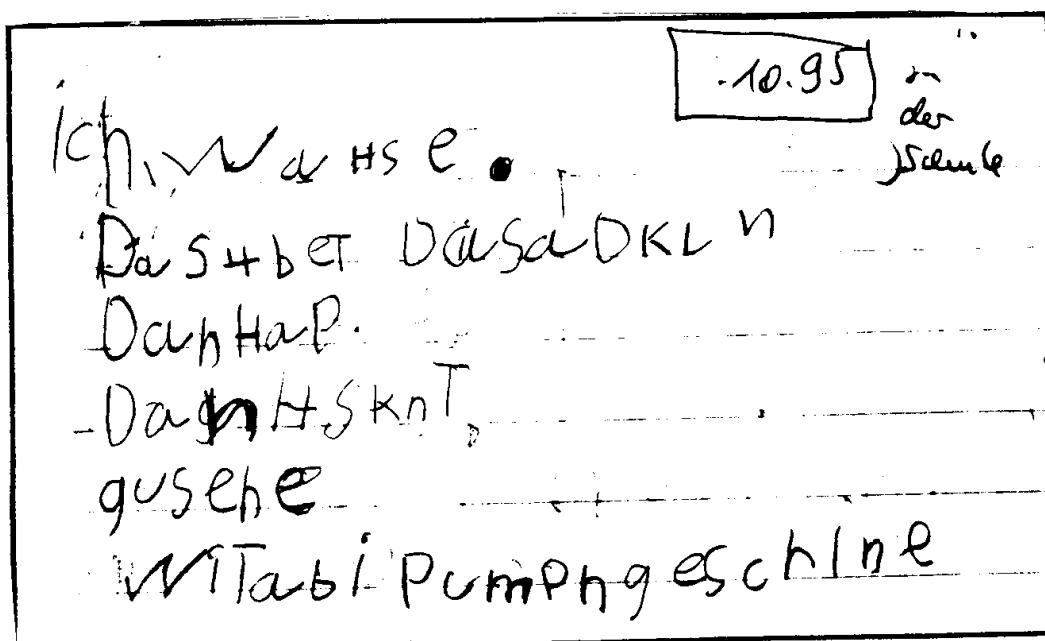 .10.95 in
der
Schule
ich, Wa HSe.
DaS HbeT DaSaDKLn
DanHaP.
DanHSKnT,
gusehe
WiTabiPumPngeschine